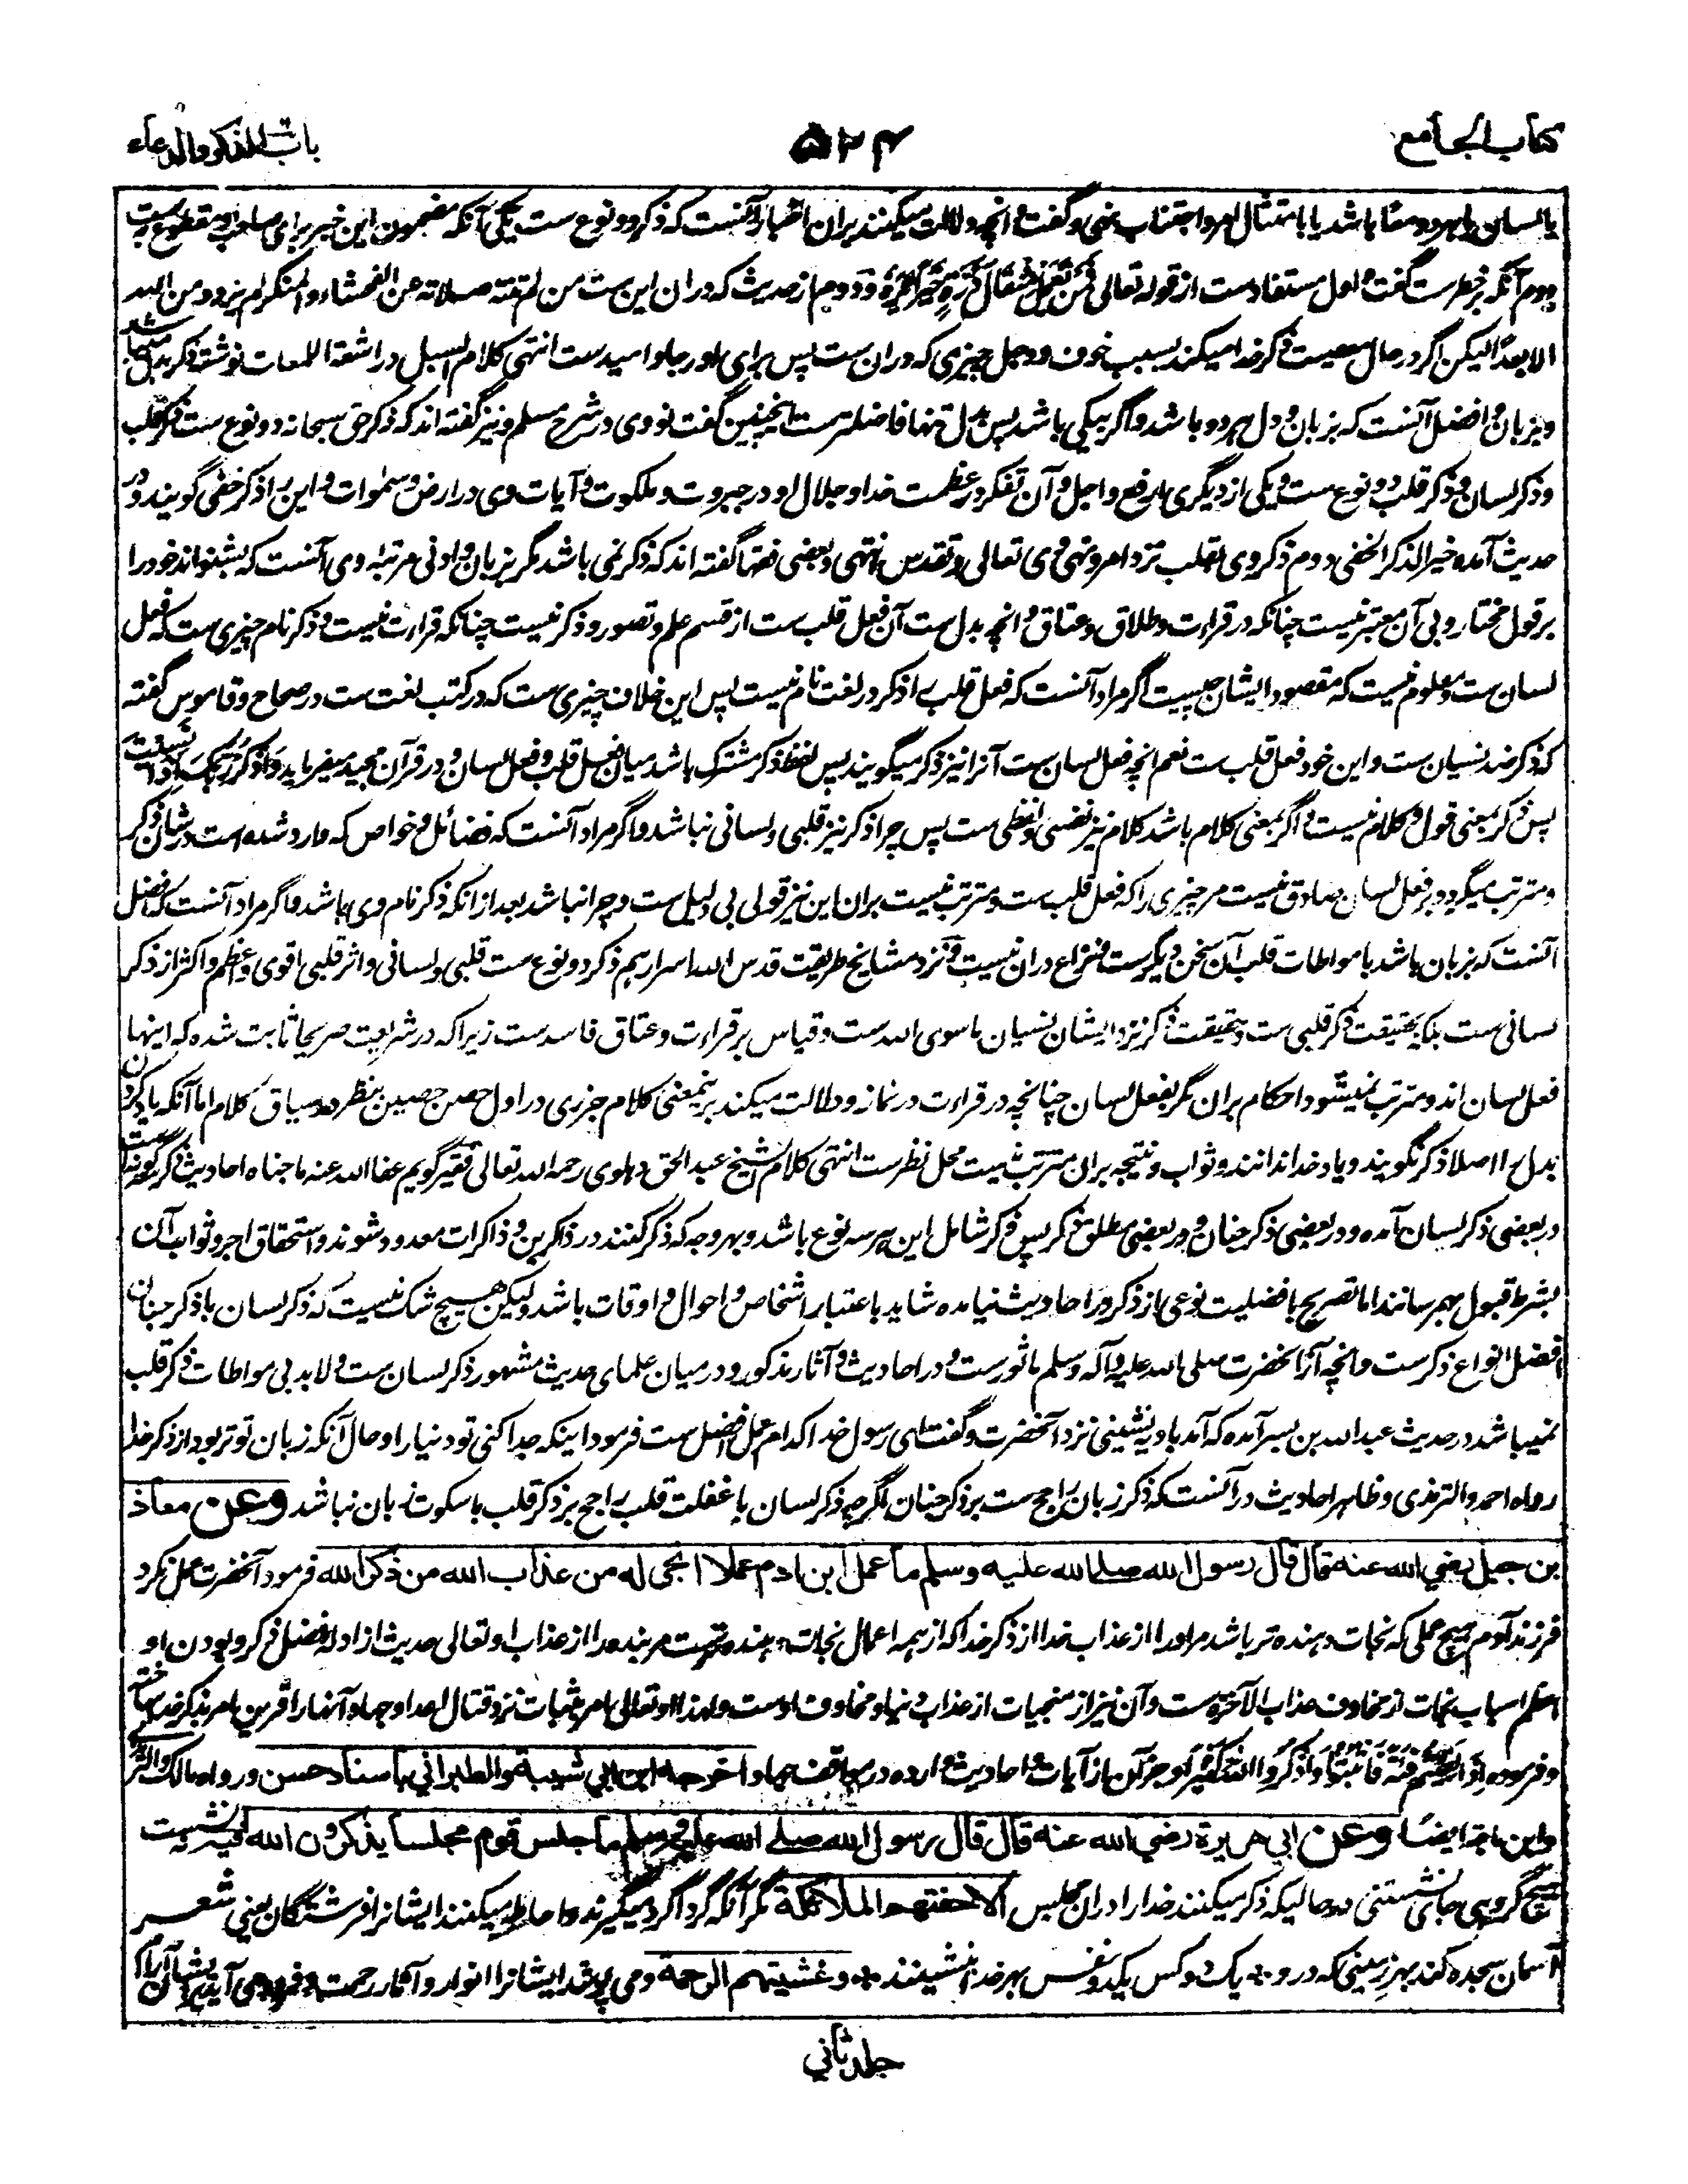 كتاب الجامع
۵۲۴
باب الذكر والدعاء
یا لسان یا بهر دو معًا باشد یا بامتثال امر و اجتناب نهی و گفته و انچه دلالت میکند بران اخبار آنست که ذکر دو نوع ست یکی آنکه مضمون این خبر برای صاحب او مقطوع به ست
دوم آنکه بر خطرست گفته و اول مستفادست از قوله تعالی فَمَن يَعْمَلْ مِثْقَالَ ذَرَّةٍ خَيْرًا يَرَهُ و دوم از حدیث که دران این ست من لم تنهه صلاته عن الفحشاء والمنکر لم یزدد من الله
الا بعدًا لیکن اگر در حال معصیت ذکر خدا میکند بسبب خوف و وجل چیزی که دران ست پس برای او رجا و امیدست انتهی کلام السبل در اشعة اللمعات نوشته ذکر بدل میباشد
و بزبان و افضل آنست که بزبان و دل هر دو باشد و اگر بیکی باشد پس بدل تنها فاضلترست اینچنین گفت نووی در شرح مسلم و نیز گفته اند که ذکر حق سبحانه دو نوع ست ذکر قلب
و ذکر لسان و ذکر قلب دو نوع ست یکی از دیگری ارفع و اجل و آن تفکر در عظمت خدا و جلال او در جبروت و ملکوت و آیات وی در ارض و سموات و این را ذکر خفی گویند و در
حدیث آمده خیر الذکر الخفی دوم ذکر وی بقلب نزد امر و نهی وی تعالی و تقدس انتهی و بعضی فقها گفته اند که ذکر نمی باشد مگر بزبان و ادنی مرتبه وی آنست که بشنواند خود را
بر قول مختار و بی آن معتبر نیست چنانکه در قراءت و طلاق و عتاق و انچه بدل ست آن فعل قلب ست از قسم علم و تصور و ذکر نیست چنانکه قراءت نیست و ذکر نام چیزی ست که فعل
لسان ست و معلوم نیست که مقصود ایشان چیست اگر مراد آنست که فعل قلب را ذکر در لغت نام نیست پس این خلاف چیزی ست که در کتب لغت ست در صحاح و قاموس گفته
که ذکر ضد نسیان ست و این خود فعل قلب ست نعم انچه فعل لسان ست آنرا نیز ذکر میگویند پس لفظ ذکر مشترک باشد میان فعل قلب و فعل لسان و در قرآن مجید میفرماید وَاذْكُر رَّبَّكَ إِذَا نَسِيتَ
پس ذکر بمعنی قول و کلام نیست و اگر بمعنی کلام باشد کلام نیز نفسی و لفظی ست پس چرا ذکر نیز قلبی و لسانی نباشد و اگر مراد آنست که فضائل و خواص که وارد شده است در شان ذکر
و مترتب میگردد بر فعل لسان صادق نیست مر چیزی را که فعل قلب ست و مترتب نیست بران این نیز قولی بی دلیل ست و چرا نباشد بعد ازانکه ذکر نام وی باشد و اگر مراد آنست که افضل
آنست که بزبان باشد با مواطات قلب آن سخن دیگرست و نزاع دران نیست و نزد مشایخ طریقت قدس الله اسرارهم ذکر دو نوع ست قلبی و لسانی و اثر قلبی اقوی و اعظم و اکثر از ذکر
لسانی ست بلکه بحقیقت ذکر قلبی ست و حقیقت ذکر نزد ایشان نسیان ما سوی الله ست و قیاس بر قراءت و عتاق فاسدست زیرا که در شریعت صریحا ثابت شده که اینها
فعل لسان اند و مترتب نمیشود احکام بران مگر بفعل لسان چنانچه در قراءت در نماز و دلالت میکند برینمعنی کلام جزری در اول حصن حصین بنظر در سیاق کلام اما آنکه یاد کردن
بدل را اصلا ذکر نگویند و یاد خدا ندانند و ثواب و نتیجه بران مترتب نیست محل نظرست انتهی کلام الشیخ عبد الحق دهلوی رحمه الله تعالی فقیر گویم عفا الله عنه ما جناه احادیث ذکر گونه گونه ست
در بعضی ذکر لسان آمده و در بعضی ذکر جنان و در بعضی مطلق ذکر پس ذکر شامل این هر سه نوع باشد و بهر وجه که ذکر کنند در ذاکرین و ذاکرات معدود شوند و استحقاق اجر و ثواب آن
بشرط قبول بهم رسانند اما تصریح بافضلیت نوعی از ذکر در احادیث نیامده شاید باعتبار اشخاص و احوال و اوقات باشد و لیکن هیچ شک نیست که ذکر لسان با ذکر جنان
افضل انواع ذکرست و انچه از آنحضرت صلی الله علیه و آله و سلم ماثورست و در احادیث و آثار مذکور و در میان علمای حدیث مشهور ذکر لسان ست و لابد بی مواطات ذکر قلب
نمیباشد در حدیث عبد الله بن بسر آمده که آمد بادیه نشینی نزد آنحضرت و گفت ای رسول خدا کدام عمل افضل ست فرمود اینکه جدا کنی تو دنیا را و حال آنکه زبان تو تر بود از ذکر خدا
رواه احمد والترمذی و ظاهر احادیث در آنست که ذکر زبان راجح ست بر ذکر جنان اگرچه ذکر لسان با غفلت قلب راجح بر ذکر قلب با سکوت زبان نباشد وعن معاذ
بن جبل رضي الله عنه قال قال رسول الله صلى الله عليه وسلم ما عمل ابن ادم عملا انجى له من عذاب الله من ذكر الله فرمود آنحضرت عمل نکرد
فرزند آدم هیچ عملی که نجات دهنده تر باشد مر او را از عذاب خدا از ذکر خدا که از همه اعمال نجات دهنده ترست مر بنده را از عذاب او تعالی حدیث از ادله فضل ذکر و بودن او
اعظم اسباب نجات از مخاوف عذاب الآخرة ست و آن نیز از منجیات از عذاب دنیا و مخاوف اوست و لهذا او تعالی امر بثبات نزد قتال اعدا و جهاد آنها را قرین امر بذکر خدا ساخته
و فرموده إِذَا لَقِيتُمْ فِئَةً فَاثْبُتُوا وَاذْكُرُوا اللَّهَ كَثِيرًا و جز آن از آیات و احادیث وارده در مواقف جهاد اخرجه ابن ابي شيبة والطبراني باسناد حسن و رواه مالک والترمذی
وابن ماجة ایضًا وعن ابي هريرة رضي الله عنه قال قال رسول الله صلى الله عليه وسلم ما جلس قوم مجلسا يذكرون الله فيه ننشست
هیچ گروهی جای نشستنی در حالیکه ذکر میکنند خدا را دران مجلس الا حفتهم الملائكة مگر آنکه گرداگرد میگیرند و احاطه میکنند ایشانرا فرشتگان یعنی شعر
آسمان سجده کند بهر زمینی که درو ÷ یک دو کس یکدو نفس بهر خدا بنشینند ÷ وغشيتهم الرحمة و می پوشد ایشانرا انوار و آثار رحمت و فرود می آید بر ایشان آرام
جلد ثاني